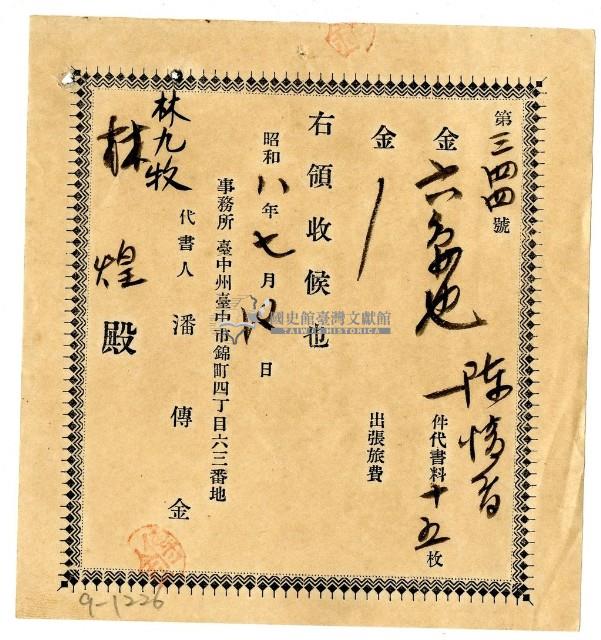 第三四四號
金六円也
陳情書
件代書料十五枚
金
出張旅費
右領收候也
昭和八年七月
日
事務所 臺中州臺中市錦町四丁目六三番地
代書人 潘傳金
林九牧
林煌殿
國史館臺灣文獻館
TAIWAN HISTORICA
9-1226